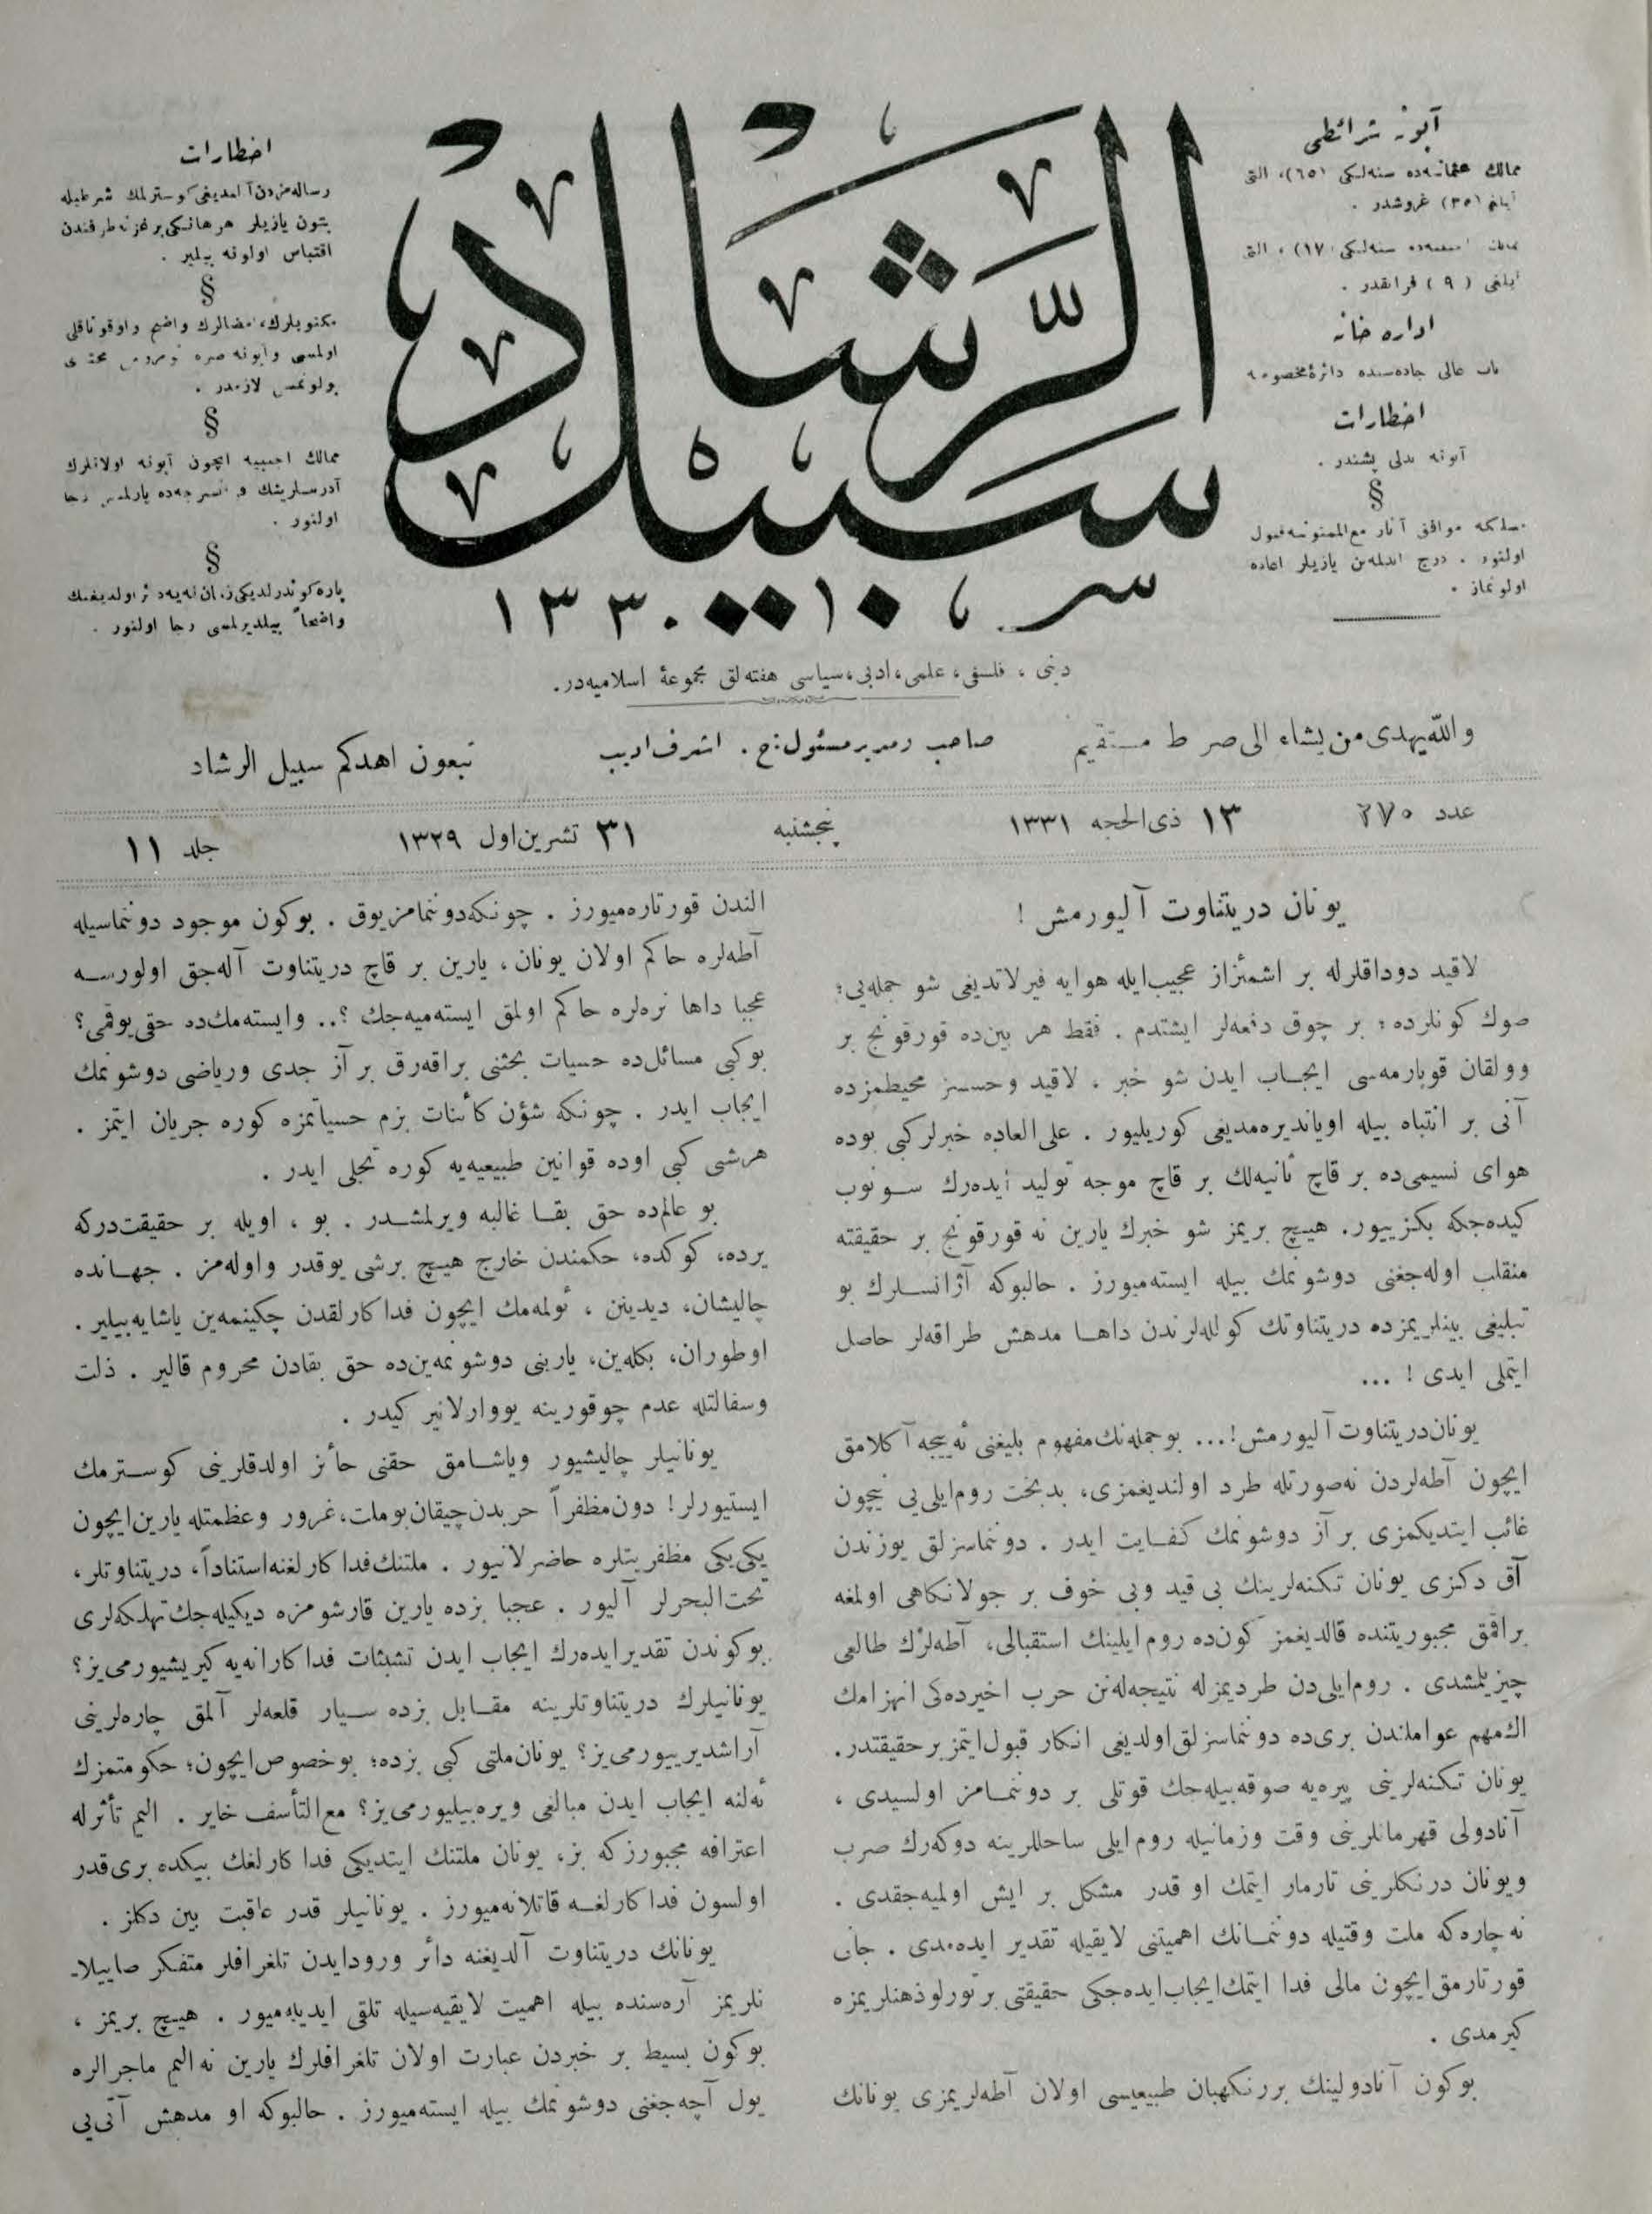 آبونه شرائطى
ممالك عثمانيه‌ده سنه‌لكى (٦٥)، التى
آيلغى (٣٥) غروشدر .
ممالك اجنبيه‌ده سنه‌لكى (١٧) ، التى
آيلغى (٩) فرانقدر .
اداره خانه
باب عالى جاده‌سنده دائرۀ مخصوصه
اخطارات
آبونه بدلى پشيندر .
§
مسلكمه موافق آثار مع الممنونيه قبول
اولنور . درج ايدلمه‌ين يازيلر اعاده
اولونماز .
سبيل الرّشاد
سر ١٣٣٠
اخطارات
رساله‌مزدن آلنديغى كوسترلمك شرطيله
بتون يازيلر هر هانكى بر غزته طرفندن
اقتباس اولونه بيلير .
§
مكتوبلرك، امضالرك واضح واوقوناقلى
اولمسى وآبونه صره نومروسى محتوى
بولونمسى لازمدر .
§
ممالك اجنبيه ايچون آبونه اولانلرك
آدرسلرينك فرانسزجه‌ده يازلمسى رجا
اولنور .
§
پاره كوندرلديكى زمان نه‌يه دائر اولديغنك
واضحاً بيلديرلمسى رجا اولنور .
دينى ، فلسفى ، علمى ، ادبى ، سياسى هفته‌لق مجموعۀ اسلاميه‌در.
والله يهدى من يشاء الى صراط مستقيم
صاحب ومدير مسئول : ح . اشرف اديب
تبعون اهدكم سبيل الرشاد
عدد ٢٧٠
١٣ ذى الحجه ١٣٣١
پنجشنبه
٣١ تشرين اول ١٣٢٩
جلد ١١
يونان دريتناوت آليورمش !
لاقيد دوداقلرله بر اشمئزاز عجيب ايله هوايه فيرلاتديغى شو جمله‌يى؛
صوك كونلرده؛ بر چوق دفعه‌لر ايشتدم . فقط هر بين‌ده قورقونج بر
وولقان قوپارمه‌سى ايجاب ايدن شو خبر ، لاقيد وحسسز محيطمزده
آنى بر انتباه بيله اوياندیره‌مديغى كوريليور . على العاده خبرلر كبى بوده
هواى نسيمى‌ده بر قاچ ثانيه‌لك بر قاچ موجه توليد ايده‌رك سونوب
كيده‌جكه بكزييور. هيچ بريمز شو خبرك يارين نه قورقونج بر حقيقته
منقلب اوله‌جغنى دوشونمك بيله ايسته‌ميورز . حالبوكه آژانسلرك بو
تبليغى بينلريمزده دريتناوتك كولله‌لرندن داها مدهش طراقه‌لر حاصل
ايتملى ايدى ! ...
يونان دريتناوت آليورمش!... بو جمله‌نك مفهوم بليغنى ئه ييجه آكلامق
ايچون آطه‌لردن نه صورتله طرد اولنديغمزى، بدبخت روم ايلى‌يى نيچون
غائب ايتديكمزى بر آز دوشونمك كفايت ايدر . دونماسزلق يوزندن
آق دكزى يونان تكنه‌لرينك بى قيد وبى خوف بر جولانكاهى اولمغه
براقمق مجبوريتنده قالديغمز كون‌ده روم ايلينك استقبالى، آطه‌لرك طالعى
چيزيلمشدى . روم ايلى‌دن طرديمزله نتيجه‌له‌نن حرب اخيرده‌كى انهزامك
اك مهم عواملندن برى‌ده دونماسزلق اولديغى انكار قبول ايتمز بر حقيقتدر.
يونان تكنه‌لرينى پيره‌يه صوقه‌بيله‌جك قوتلى بر دونمامز اولسيدى ،
آنادولى قهرمانلرينى وقت وزمانيله روم ايلى ساحللرينه دوكه‌رك صرب
ويونان درنكلرينى تارمار ايتمك او قدر مشكل بر ايش اولميه‌جقدى .
نه چاره‌كه ملت وقتيله دونمانك اهميتنى لايقيله تقدير ايده‌مدى . جان
قورتارمق ايچون مالى فدا ايتمك ايجاب ايده‌جكى حقيقتى بر تورلو ذهنلريمزه
كيرمدى .
بوكون آنادولينك بررنكهبان طبيعيسى اولان آطه‌لريمزى يونانك
الندن قورتاره‌ميورز . چونكه دونمامز يوق . بوكون موجود دونماسيله
آطه‌لره حاكم اولان يونان، يارين بر قاچ دريتناوت آله‌جق اولورسه
عجبا داها نره‌لره حاكم اولمق ايسته‌ميه‌جك ؟.. وايسته‌مك‌ده حقى يوقمى؟
بوكبى مسائل‌ده حسيات بحثنى براقه‌رق بر آز جدى ورياضى دوشونمك
ايجاب ايدر . چونكه شؤن كائنات بزم حسياتمزه كوره جريان ايتمز .
هرشى كبى اوده قوانين طبيعيه‌يه كوره تجلى ايدر .
بو عالم‌ده حق بقا غالبه ويرلمشدر . بو ، اويله بر حقيقت‌دركه
يرده، كوكده، حكمندن خارج هيچ برشى يوقدر واوله‌مز . جهانده
چاليشان، ديدينن ، ئولمه‌مك ايچون فداكارلقدن چكينمه‌ين ياشايه‌بيلير .
اوطوران، بكله‌ين، يارينى دوشونمه‌ين‌ده حق بقادن محروم قالير . ذلت
وسفالتله عدم چوقورينه يووارلانير كيدر .
يونانيلر چاليشيور وياشامق حقنى حائز اولدقلرينى كوسترمك
ايستيورلر! دون مظفراً حربدن چيقان بو ملت، غرور وعظمتله يارين ايچون
يكى يكى مظفريتلره حاضرلانيور . ملتنك فداكارلغنه استناداً، دريتناوتلر،
تحت البحرلر آليور . عجبا بزده يارين قارشومزه ديكيله‌جك تهلكه‌لرى
بوكوندن تقدير ايده‌رك ايجاب ايدن تشبثات فداكارانه‌يه كيريشيورمى‌يز؟
يونانيلرك دريتناوتلرينه مقابل بزده سيار قلعه‌لر آلمق چاره‌لرينى
آراشديرييورمى‌يز؟ يونان ملتى كبى بزده؛ بو خصوص ايچون؛ حكومتمزك
ئه‌لنه ايجاب ايدن مبالغى ويره‌بيليورمى‌يز؟ مع التأسف خاير . اليم تأثرله
اعترافه مجبورزكه بز، يونان ملتنك ايتديكى فداكارلغك بيكده برى‌قدر
اولسون فداكارلغه قاتلانه‌ميورز . يونانيلر قدر عاقبت بين دكلز .
يونانك دريتناوت آلديغنه دائر ورودايدن تلغرافلر متفكر صاييلا-
نلريمز آره‌سنده بيله اهميت لايقيه‌سيله تلقى ايديله‌ميور . هيچ بريمز ،
بوكون بسيط بر خبردن عبارت اولان تلغرافلرك يارين نه اليم ماجرالره
يول آچه‌جغنى دوشونمك بيله ايسته‌ميورز . حالبوكه او مدهش آتى‌يى